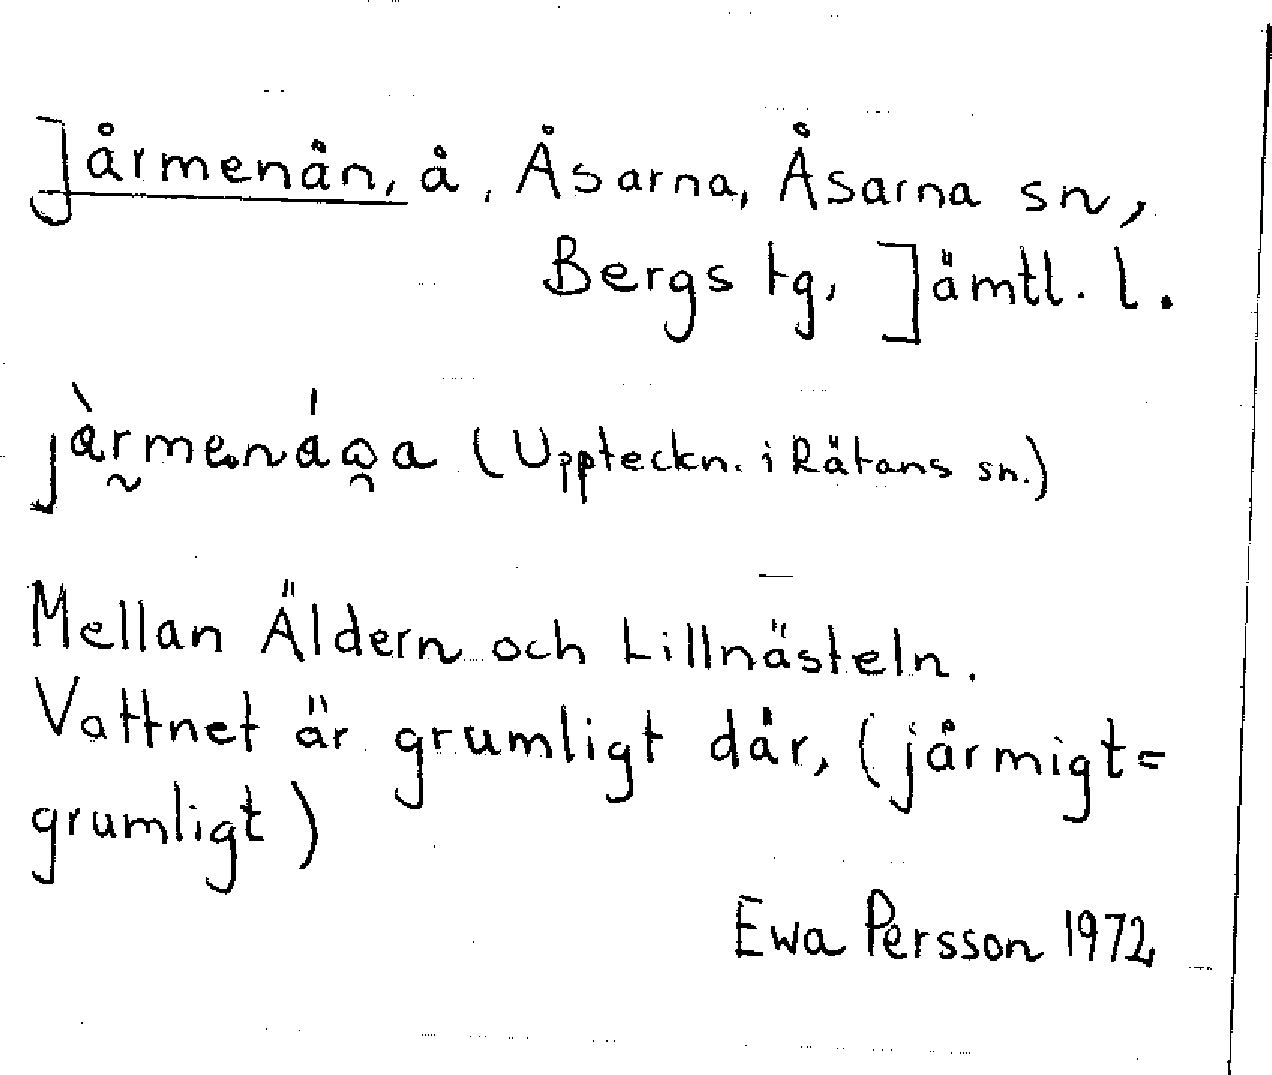 Jårmenån, å, Åsarna, Åsarna sn,
Bergs tg, Jämtl. l.
(Uppteckn. i Rätans sn.)
Mellan Äldern och Lillnästeln.
Vattnet är grumligt där, (jårmigt=
grumligt)
Ewa Persson 1972